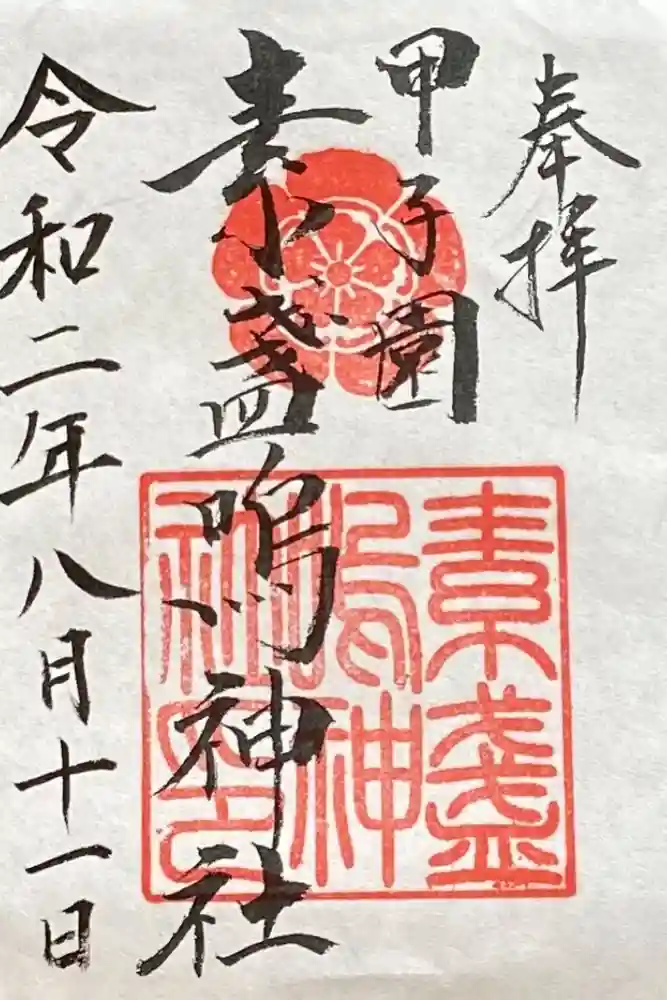 奉拝
甲子園
素盞嗚神社
令和二年八月十一日
素盞
嗚神
社印